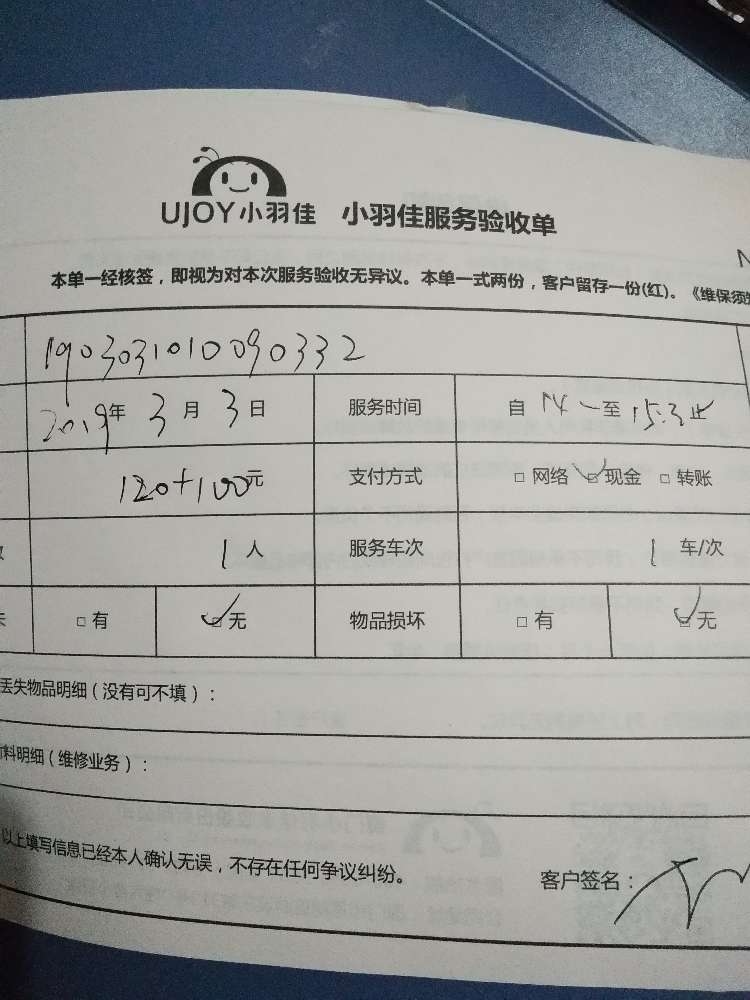 UJOY小羽佳 小羽佳服务验收单
本单一经核签，即视为对本次服务验收无异议。本单一式两份，客户留存一份(红)。《维保须
1903031010090332
2019年 3月 3日 服务时间 自 14 一至 15:3 止
120+100元 支付方式 □ 网络 ☑ 现金 □ 转账
1 人 服务车次 1 车/次
□ 有 ☑ 无 物品损坏 □ 有 ☑ 无
丢失物品明细（没有可不填）：
料明细（维修业务）：
以上填写信息已经本人确认无误，不存在任何争议纠纷。
客户签名：